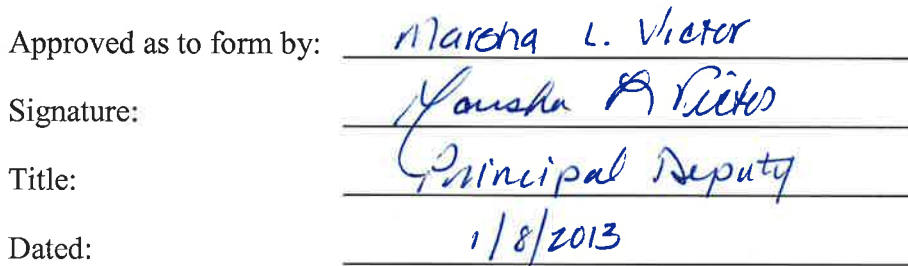 Approved as to form by: Marsha L. Victor
Signature: Marsha L Victor
Title: Principal Deputy
Dated: 1/8/2013